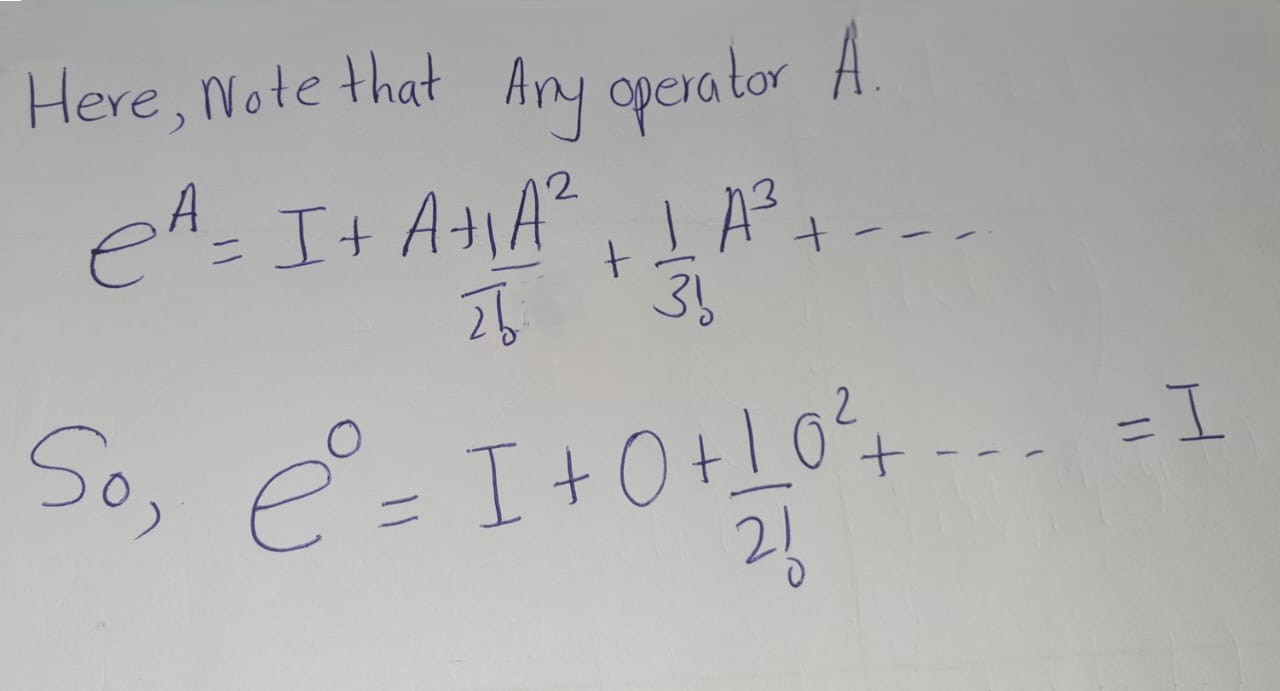 Here, Note that Any operator A.
e^A = I + A + 1/2! A^2 + 1/3! A^3 + ----
So, e^0 = I + 0 + 1/2! 0^2 + ---- = I